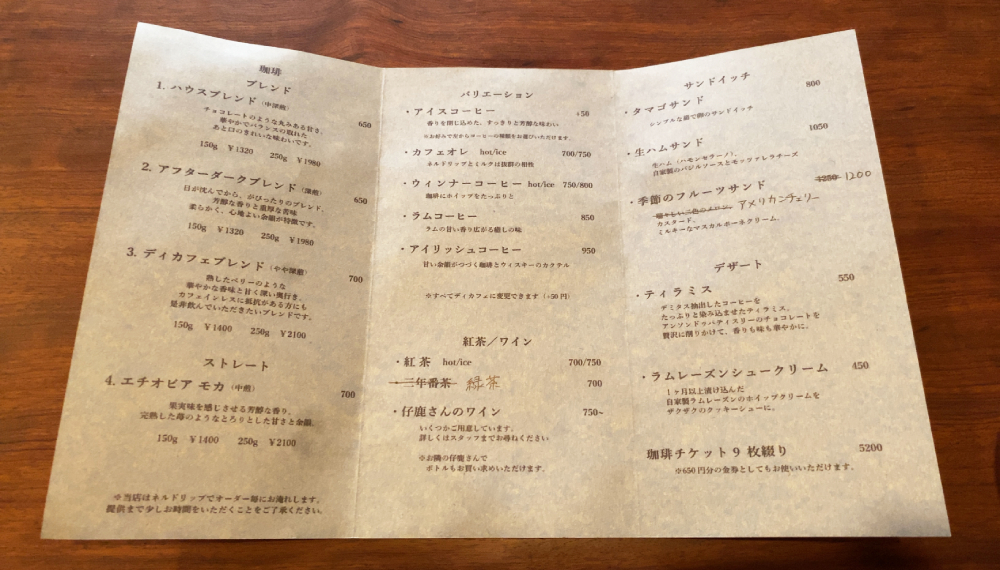 珈琲
ブレンド
1. ハウスブレンド（中深煎） 650
チョコレートのような丸みある甘さ。
華やかでバランスの取れた
あと口のきれいな味わいです。
150g ￥1320 250g ￥1980
2. アフターダークブレンド（深煎） 650
日が沈んでから、がぴったりのブレンド。
芳醇な香りと重厚な苦味
柔らかく、心地よい余韻が特徴です。
150g ￥1320 250g ￥1980
3. ディカフェブレンド（やや深煎） 700
熟したベリーのような
華やかな香味と甘く深い奥行き。
カフェインレスに抵抗がある方にも
是非飲んでいただきたいブレンドです。
150g ￥1400 250g ￥2100
ストレート
4. エチオピア モカ（中煎） 700
果実味を感じさせる芳醇な香り。
完熟した苺のようなとろりとした甘さと余韻。
150g ￥1400 250g ￥2100
※当店はネルドリップでオーダー毎にお淹れします。
提供まで少しお時間をいただくことをご了承ください。
バリエーション
・アイスコーヒー +50
香りを閉じ込めた、すっきりと芳醇な味わい
※お好みで左からコーヒーの種類をお選びいただけます。
・カフェオレ hot/ice 700/750
ネルドリップとミルクは抜群の相性
・ウィンナーコーヒー hot/ice 750/800
珈琲にホイップをたっぷりと
・ラムコーヒー 850
ラムの甘い香り広がる癒しの味
・アイリッシュコーヒー 950
甘い余韻がつづく珈琲とウィスキーのカクテル
※すべてディカフェに変更できます（+50円）
紅茶／ワイン
・紅茶 hot/ice 700/750
・三年番茶 緑茶 700
・仔鹿さんのワイン 750~
いくつかご用意しています。
詳しくはスタッフまでお尋ねください
※お隣の仔鹿さんで
ボトルもお買い求めいただけます。
サンドイッチ
・タマゴサンド 800
シンプルな茹で卵のサンドイッチ
・生ハムサンド 1050
生ハム（ハモンセラーノ）、
自家製のバジルソースとモッツァレラチーズ
・季節のフルーツサンド 1250 1200
瑞々しい二色のメロン、 アメリカンチェリー
カスタード、
ミルキーなマスカルポーネクリーム。
デザート
・ティラミス 550
デミタス抽出したコーヒーを
たっぷりと染み込ませたティラミス。
アンソンドゥパティスリーのチョコレートを
贅沢に削りかけて、香りも味も華やかに。
・ラムレーズンシュークリーム 450
1ヶ月以上漬け込んだ
自家製ラムレーズンのホイップクリームを
ザクザクのクッキーシューに。
珈琲チケット9枚綴り 5200
※650円分の金券としてもお使いいただけます。